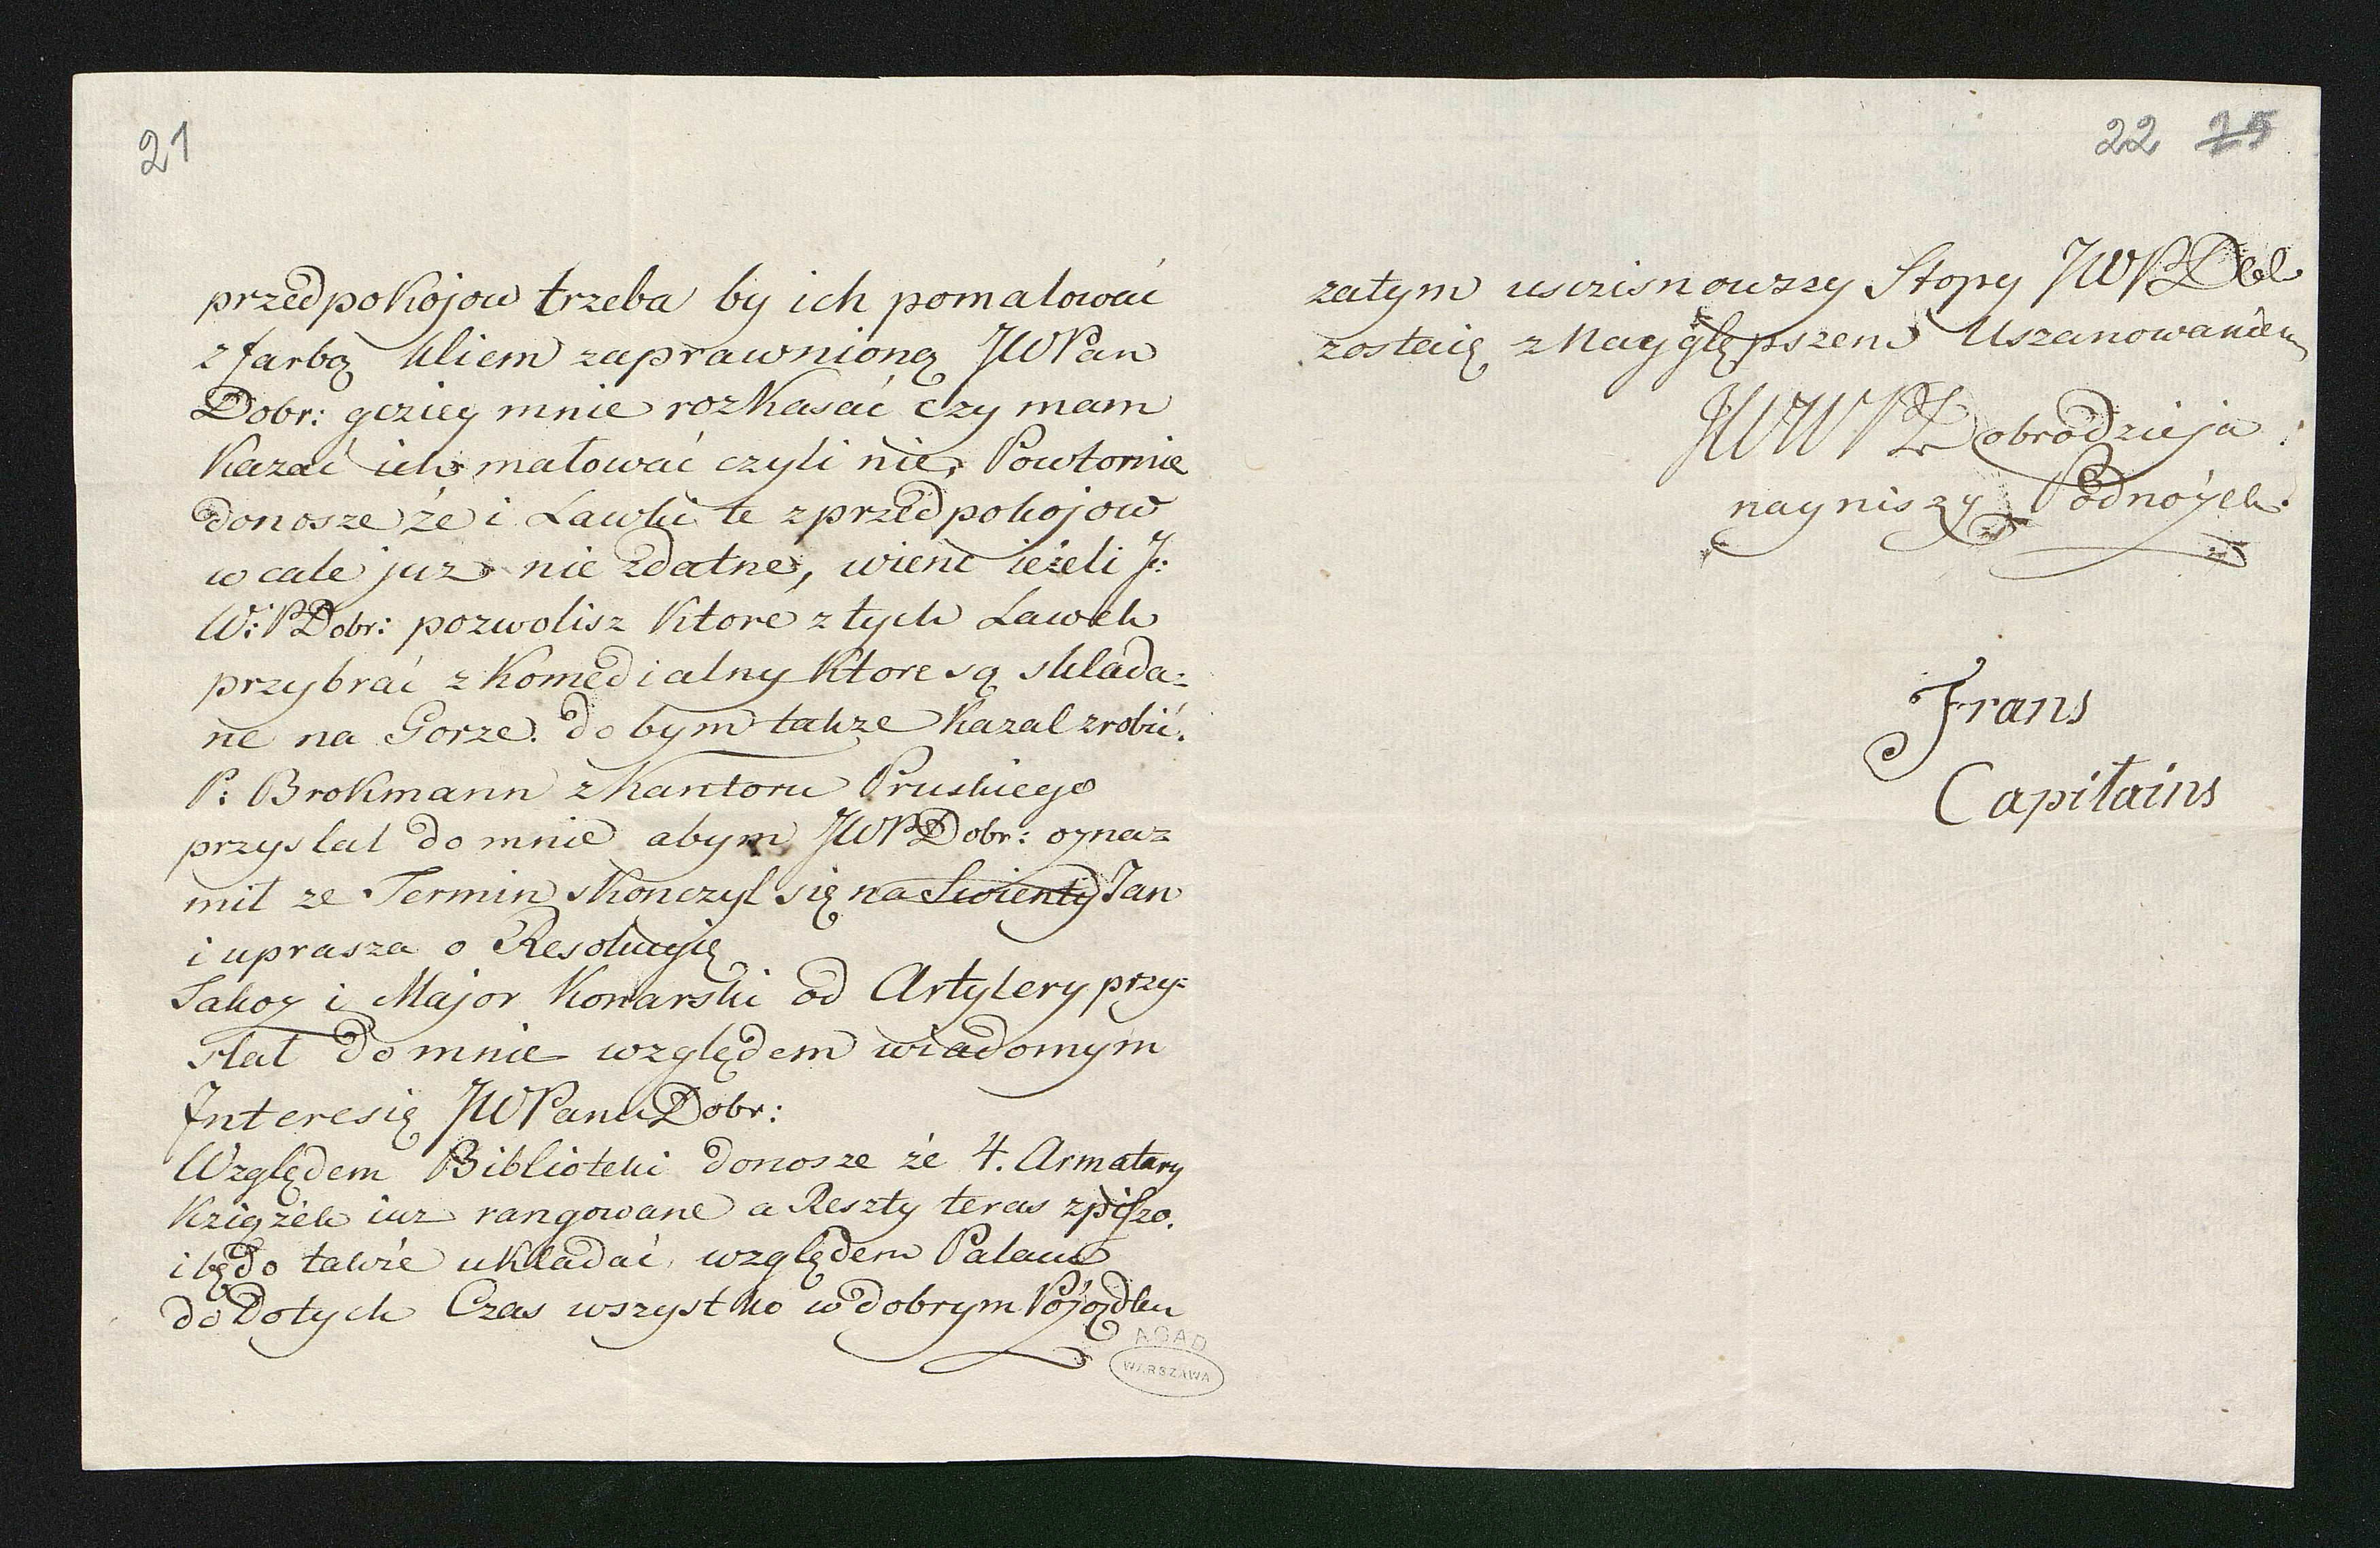 21
przedpokojow trzeba by ich pomalować
z farbą kliem zaprawnioną JWPan
Dobr: gcziey mnie rozkasać czy mam
kazać ich malować czyli nie, Powtornie
donosze że i Lawki te z przedpokojow
w cale juz nie zdatne, wienc ieżeli J:
W: P Dobr: pozwolisz ktore z tych Lawek
przybrać z komedialny ktore są sklada=
ne na Gorze. do bym takze kazal zrobić.
P: Brokmann z kantoru Pruskiego
przyslal do mnie abym JWPDobr: oznaz
mil ze Termin skonczyl się na Swienty Jan
i uprasza o Resolucyię
Jakoz i Major Konarski od Artylery przy=
slal do mnie względem wiadomym
Interesię JWPanu Dobr:
Względem Biblioteki donosze że 4. Armatary
Ksiązek iuz rangowane a Reszty teras zpiszo.
i będo także ukladać, względem Palacu
do Dotych Czas wszystko w dobrym Pójozdku
AGAD
WARSZAWA
22 25
zatym uscisnowszy Stopy JWPDbl
zostaię z Nayglępszem Uszanowaniem
JWWPDobrodzieja
nayniszy Podnóżek.
Frans
Capitains